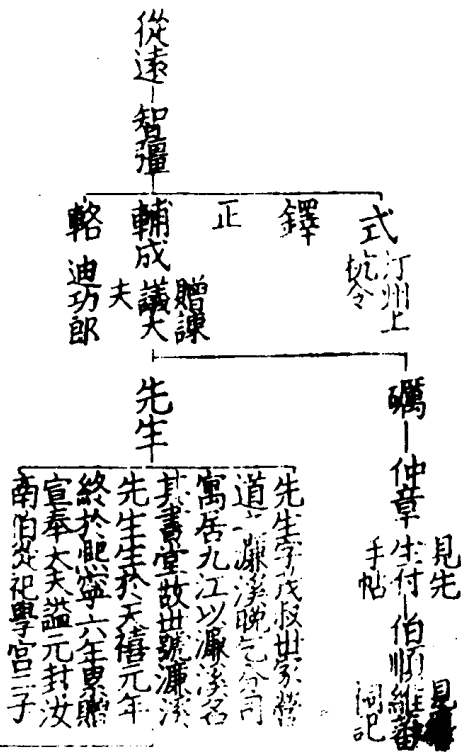 從遠
智彊
式
汀州上
杭令
鐸
正
輔成
贈諫
議大
夫
輅
迪功郎
礪
仲章
見先
生付
手帖
伯順
見
維蕃
祠記
先生
先生字茂叔世家營
道濂溪晚分司
寓居九江以濂溪名
其書堂故世號濂溪
先生生於天禧元年
終於熙寧六年累贈
宣奉大夫謚元封汝
南伯從祀學宮二子